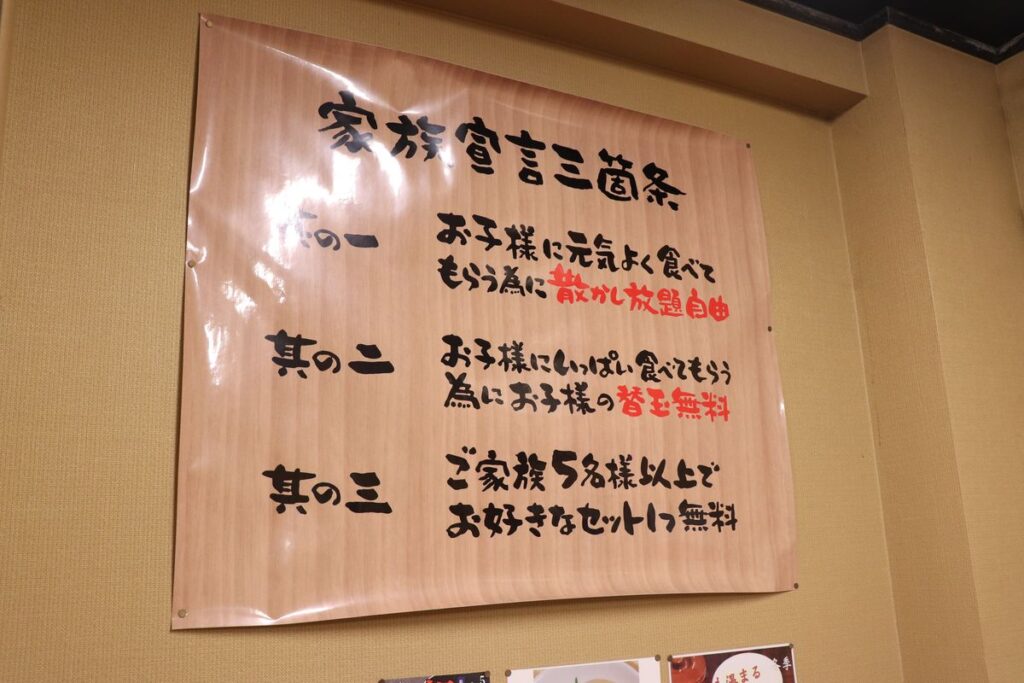 家族宣言三箇条
其の一
お子様に元気よく食べて
もらう為に散かし放題自由
其の二
お子様にいっぱい食べてもらう
為にお子様の替玉無料
其の三
ご家族5名様以上で
お好きなセット1つ無料
温まる
冬季